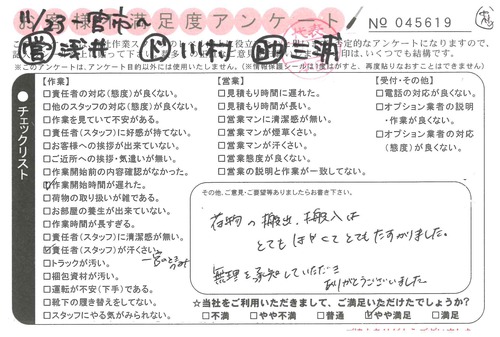 11/23 一宮市へ
お客様満足度アンケート
No 045619
営 浅井 ド 助 三浦
※このアンケートは、アンケート目的以外には使用いたしません。
チェックリスト
【作業】
□責任者の対応(態度)が良くない。
□他のスタッフの対応(態度)が良くない。
□作業を見ていて不安がある。
□責任者(スタッフ)に好感が持てない。
□お客様への挨拶が出来ていない。
□ご近所への挨拶・気遣いが無い。
□作業開始前の内容確認がなかった。
☑作業開始時間が遅れた。
□荷物の取り扱いが雑である。
□お部屋の養生が出来ていない。
□作業時間が長すぎる。
□責任者(スタッフ)に清潔感が無い。
☑責任者(スタッフ)が汗くさい。
□トラックが汚い。
□梱包資材が汚い。
□運転が不安(下手)である。
□靴下の履き替えをしてない。
□スタッフにやる気がみられない。
【営業】
□見積もり時間に遅れた。
□見積もり時間が長い。
□営業マンに清潔感が無い。
□営業マンが煙草くさい。
□営業マンが汗くさい。
□営業態度が良くない。
□営業の説明と作業が一致してない。
【受付・その他】
□電話の対応が良くない。
□オプション業者の説明
・作業が良くない。
□オプション業者の対応
(態度)が良くない。
その他、ご意見・ご要望等ありましたらお書き下さい。
荷物の搬出、搬入は
とてもはやくてとてもたすかりました。
無理を承知していただき
ありがとうございました
☆当社をご利用いただきまして、ご満足いただけたでしょうか?
□不満 □やや不満 □普通 ☑やや満足 □満足